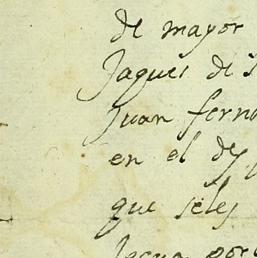 de mayor
Jaques de
Juan fern
en el de
que seles